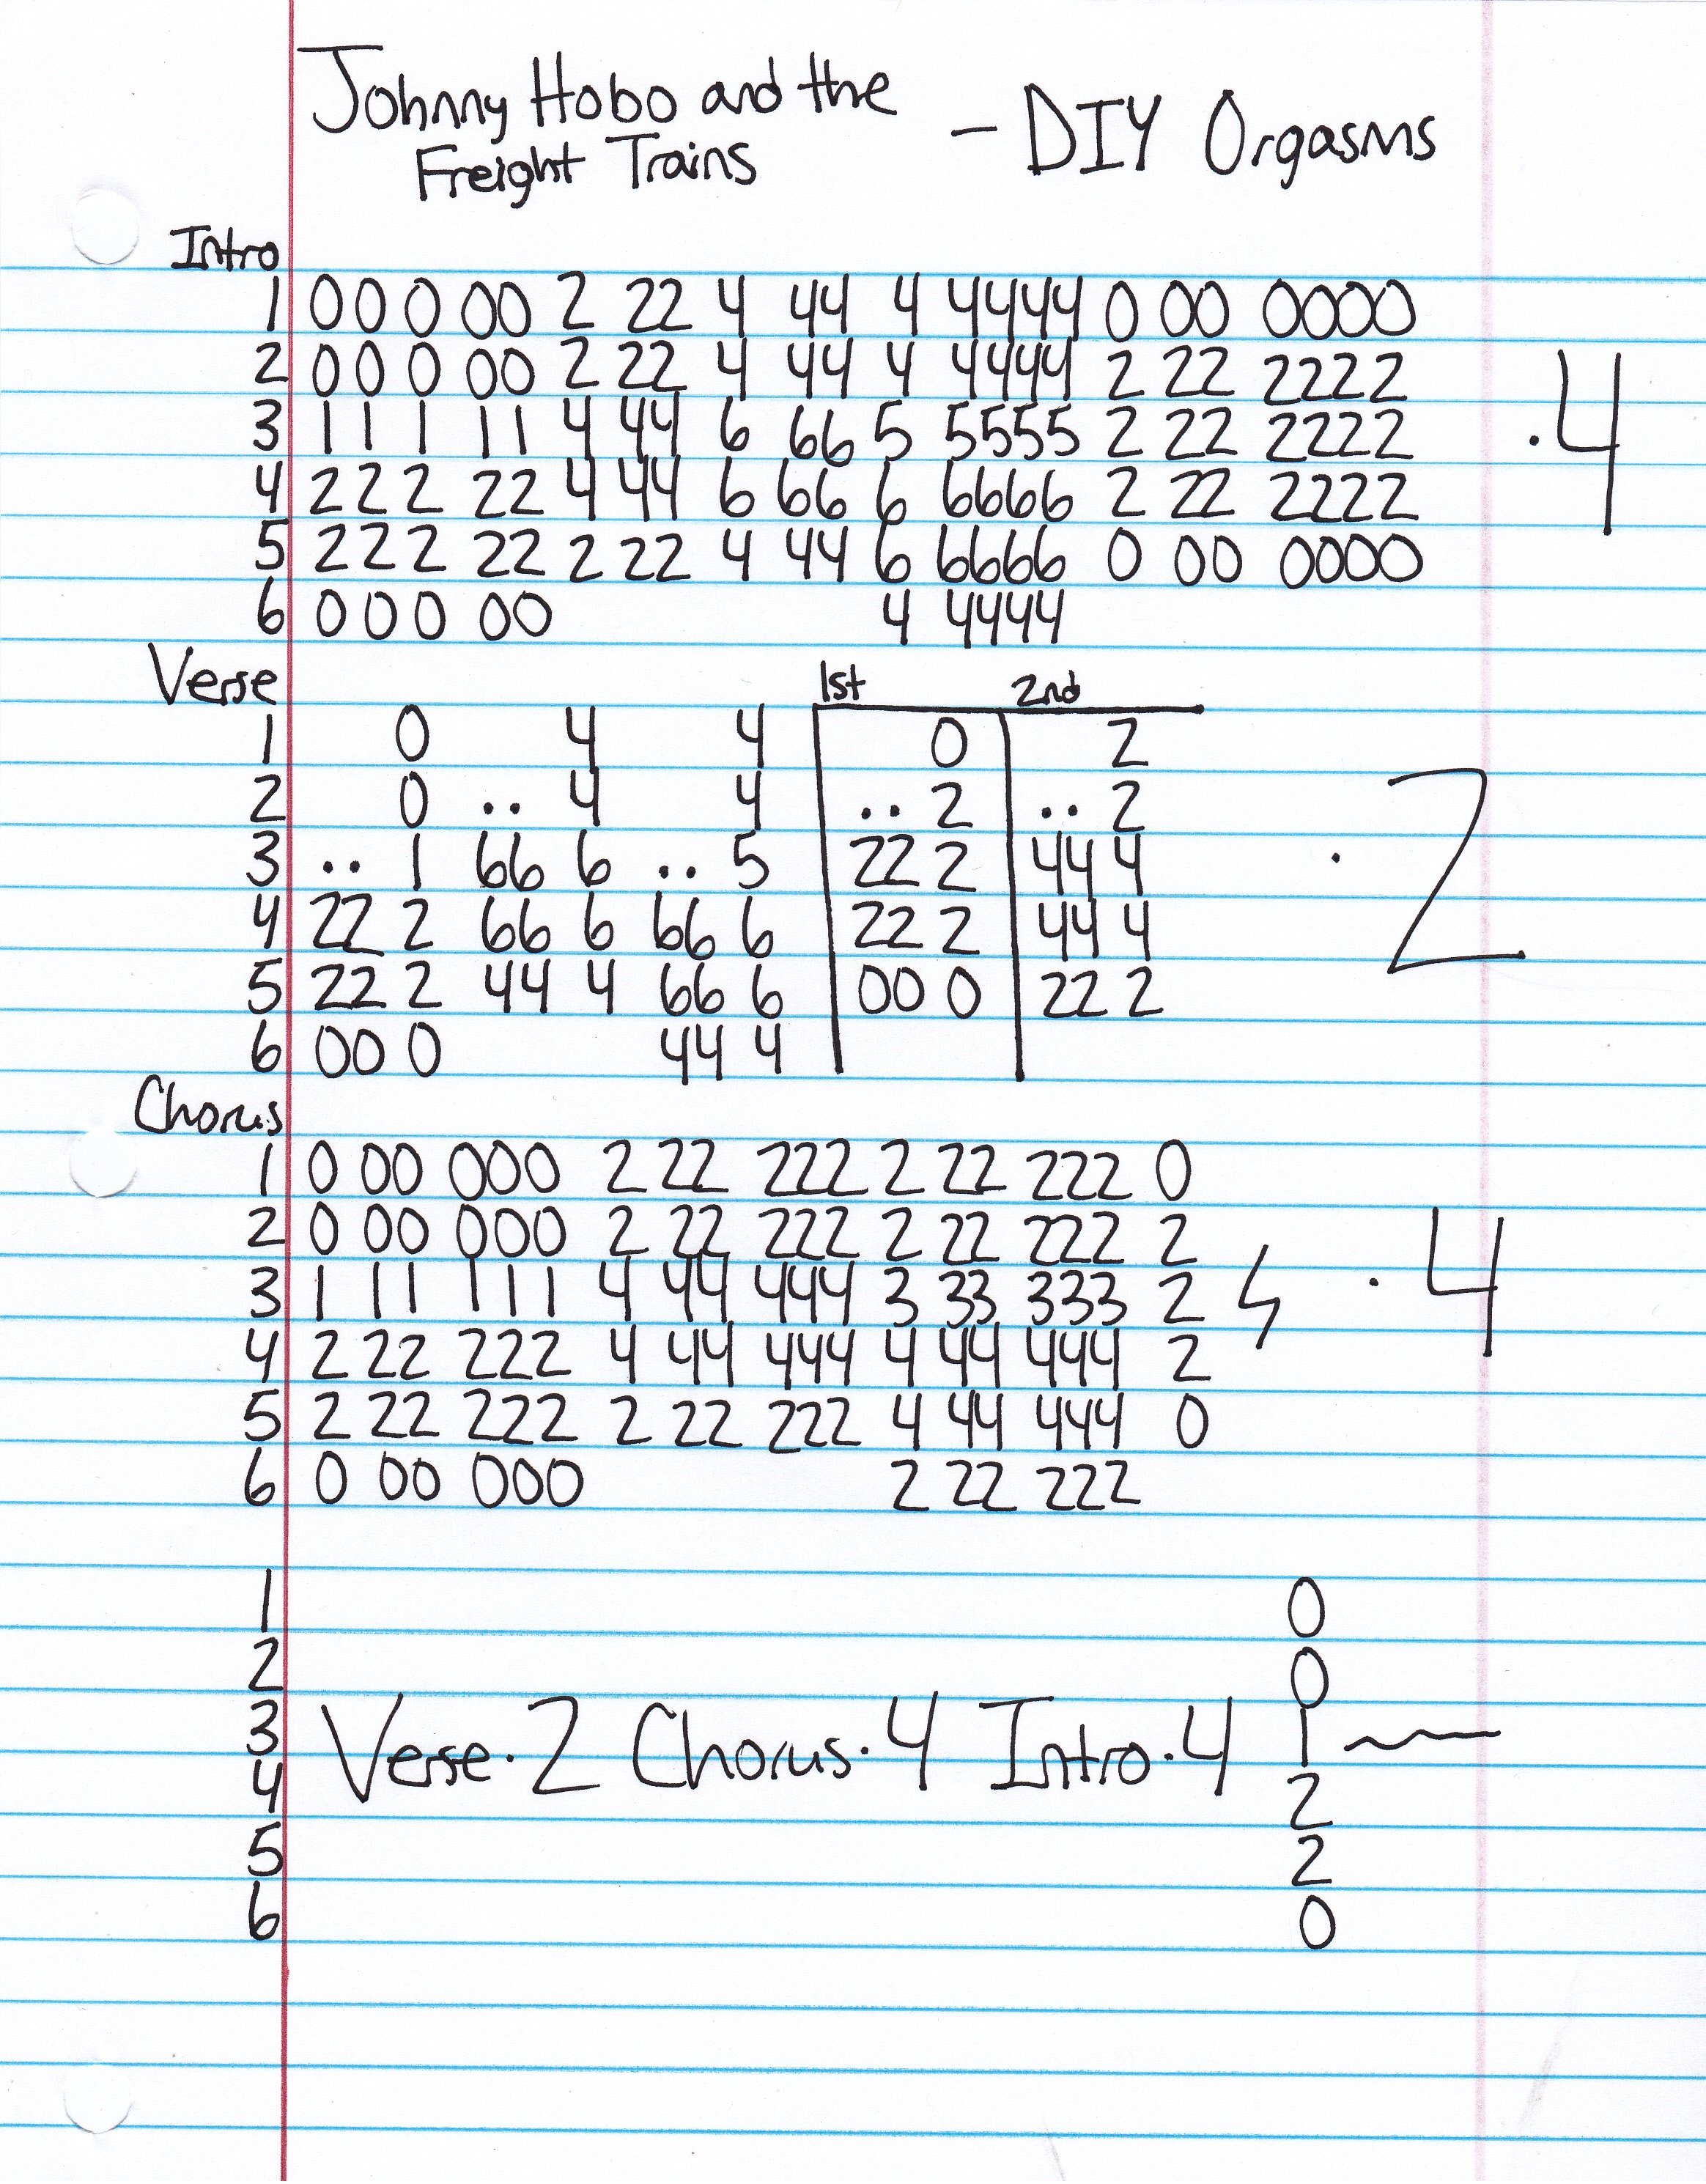 Johnny Hobo and the
Freight Trains - DIY Orgasms
Intro
1 0 0 0 00 2 22 4 44 4 4444 0 00 0000
2 0 0 0 00 2 22 4 44 4 4444 2 22 2222
3 1 1 1 11 4 44 6 66 5 5555 2 22 2222
4 2 2 2 22 4 44 6 66 6 6666 2 22 2222
5 2 2 2 22 2 22 4 44 6 6666 0 00 0000
6 0 0 0 00 4 4444
. 4
Verse 1st 2nd
1 0 4 4 0 2
2 0 .. 4 4 .. 2 .. 2
3 .. 1 66 6 .. 5 22 2 44 4
4 22 2 66 6 66 6 22 2 44 4
5 22 2 44 4 66 6 00 0 22 2
6 00 0 44 4
. 2
Chorus
1 0 00 000 2 22 222 2 22 222 0
2 0 00 000 2 22 222 2 22 222 2
3 1 11 111 4 44 444 3 33 333 2
4 2 22 222 4 44 444 4 44 444 2
5 2 22 222 2 22 222 4 44 444 0
6 0 00 000 2 22 222
. 4
1 0
2 0
3 Verse . 2 Chorus . 4 Intro . 4 1
4 2
5 2
6 0